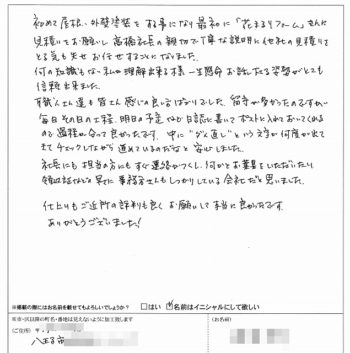 初めて屋根、外壁塗装をする事になり最初に「花まるリフォーム」さんに
見積りをお願いし高橋社長の親切で丁寧な説明に他社の見積りを
とる気も失せお任せすることになりました。
何の知識もない私が理解出来る様一生懸命お話し下さる姿勢がとても
信頼出来ました。
職人さん達も皆さん感じの良い方ばかりでした。留守が多かったのですが
毎日その日の工程、明日の予定など日誌に書いてポストに入れておいてくれる
ので過程が分って良かったです。中に"ダメ直し"という文字が何度か出て
きてチェックしながら進めているのだなと安心しました。
社長にも担当の方にもすぐ連絡がつくし、何かとお葉書をいただいたり
領収証なども早く事務員さんもしっかりしている会社だと思いました。
仕上りもご近所の評判も良くお願いして本当に良かったです。
ありがとうございました!
※掲載の際にはお名前を載せてもよろしいでしょうか? □はい ☑名前はイニシャルにして欲しい
※市・区以降の町名・番地は見えないように加工致します
(ご住所) 〒
(お名前)
八王子市